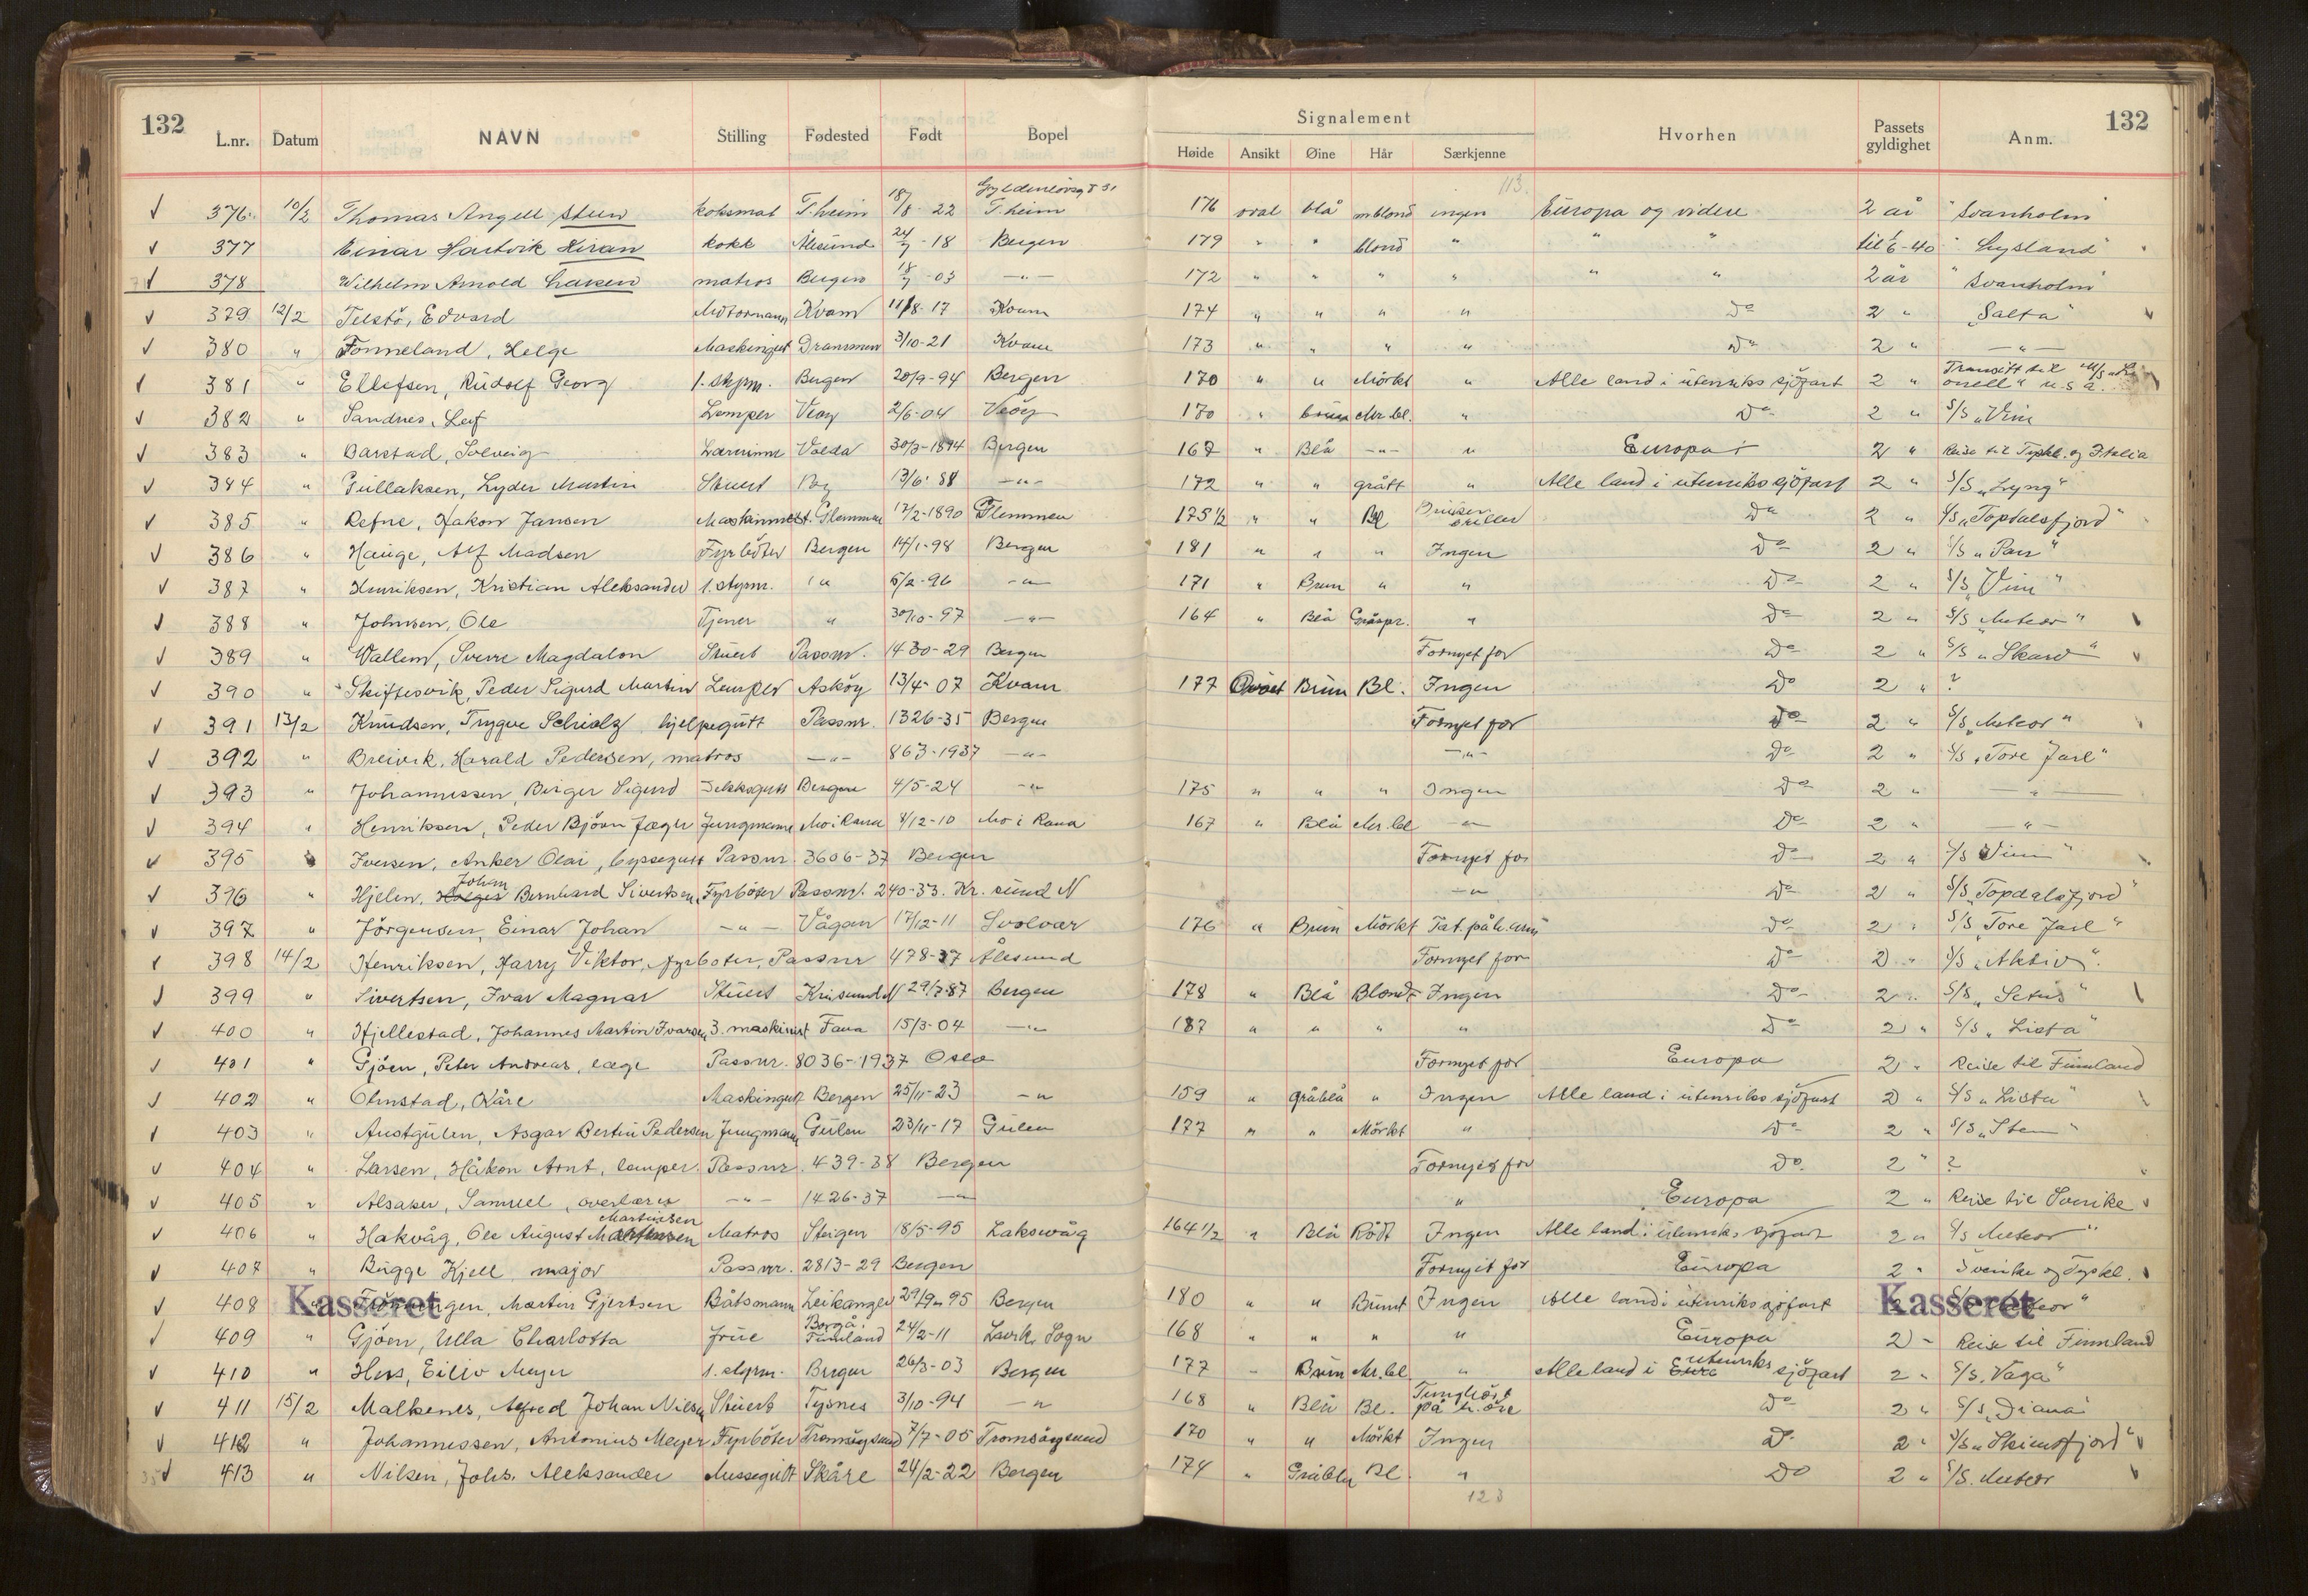 132
L.nr. Datum NAVN Stilling Fødested Født Bopel
Signalement
Høide Ansikt Øine Hår Særkjenne Hvorhen Passets gyldighet Anm.
132
113.
376 10/2 Thomas Angell Steen koksmat T.heim 18/8-22 T.heim 176 oval blå mblond ingen Europa og videre 2 år "Svanholm"
377 Einar Hartvik Kiran kokk Ålesund 24/7-18 Bergen 179 " " blond " " " til 1/6-40 "Lysland"
378 Wilhelm Arnold Larsen matros Bergen 18/7-03 -"- 172 " " " " " " 2 år "Svanholm"
379 12/2 Telstö, Edvard Motormann Kvam 11/8-17 Kvam 174 " " " " Do 2 " "Salta"
380 " Fonneland, Helge Maskingut Drammen 3/10-21 Kvam 173 " " " " Do 2 " -"-
381 " Ellefsen, Rudolf Georg 1. styrm. Bergen 20/9-94 Bergen 170 " " Mörkt " Alle land i utenriks sjöfart 2 " Transitt til
382 " Sandnes, Leif Lemper Veöy 2/6-04 Veöy 170 " brun Mr.bl. " Do 2 " S/S "Vim
383 " Barstad, Solveig Lærerinne Volda 30/3-1894 Bergen 167 " Blå -"- " Europa 2 " Reise til Tyskl. og Italia
384 " Gullaksen, Lyder Martin Stuert Bg 13/6-88 -"- 172 " " grått " Alle land i utenriks sjöfart 2 " S/S "Lyng"
385 " Refne, Hakon Jansen Maskinmest. Glemmen 17/2-1890 Glemmen 175 1/2 " " Bl Bruker briller Do 2 " S/S "Topdalsfjord"
386 " Hauge, Alf Madsen Fyrböter Bergen 14/1-98 Bergen 181 " " " Ingen Do 2 " S/S "Pan"
387 " Henriksen, Kristian Aleksander 1. styrm. " 5/2-96 -"- 171 " Brun " " Do 2 " S/S "Vim"
388 " Johnsen, Ole Tjener " 30/10-97 -"- 164 " Blå Gråspr. " Do 2 " S/S "Meteor"
389 " Wallem, Sverre Magdalon Stuert Passnr. 1430-29 Bergen Fornyet for Do 2 " S/S "Skard"
390 " Skiftesvik, Peder Sigurd Martin Lemper Asköy 13/4-07 Kvam 177 Ovalt Brun Bl. Ingen Do 2 " ?
391 13/2 Knudsen, Trygve Schiolz hjelpegutt Passnr. 1326-35 Bergen Fornyet for Do 2 " S/S "Meteor"
392 " Breivik, Harald Pedersen, matros -"- 863-1937 -"- -"- Do 2 " S/S "Tore Jarl"
393 " Johannessen, Birger Sigurd Dekksgutt Bergen 4/5-24 -"- 175 " " " Ingen Do 2 " -"-
394 " Henriksen, Peder Bjöen Jæger Jungmann Mo i Rana 4/12-10 Mo i Rana 167 " Blå Mr.bl -"- Do 2 " -"-
395 " Iversen, Anker Olai, byssegutt Passnr 3606-37 Bergen Fornyet for Do 2 " S/S Vim"
396 " Hjelen, Holger Johan Bernhard Sivertsen, Fyrböter Passnr. 240-33. Kr.sund N -"- Do 2 " S/S "Topdalsfjord"
397 " Jörgensen, Einar Johan -"- Vågan 17/12-11 Svolvær 176 " Brun Mörkt Tat. på h. arm Do 2 " S/S "Tore Jarl"
398 14/2 Henriksen, Harry Viktor, fyrböter, Passnr 478-37 Ålesund Fornyet for Do 2 " S/S "Aktiv".
399 " Sivertsen, Ivar Magnar Stuert Kr.sund N 29/7-87 Bergen 178 " Blå Blondt Ingen Do 2 " S/S "Setus"
400 " Hjellestad, Johannes Martin Ivarsen 3. maskinist Fana 15/3-04 -"- 187 " " " " Do 2 " S/S "Lista"
401 " Gjöen, Peter Andreas, læge Passnr. 8036-1937 Oslo Fornyet for Europa 2 " Reise til Finnland
402 " Olmstad, Kåre Maskingutt Bergen 25/11-23 -"- 159 " gråblå " Ingen Alle land i utenriks sjöfart 2 " S/S "Lista"
403 " Austgulen, Asgar Bertin Pedersen Jungmann Gulen 23/11-17 Gulen 177 " " Mörkt " Do 2 " S/S "Stem"
404 " Larsen, Håkon Arnt, lemper. Passnr. 439-38 Bergen Fornyet for Do. 2 " ?
405 " Alsaker, Samuel, overlærer -"- 1426-37 -"- " Europa 2 " Reise til Sverike
406 " Hakvåg, Ole August Martinsen Matros Steigen 18/5-95 Laksevåg 164 1/2 " Blå Rödt Ingen Alle land i utenriks sjöfart 2 " S/S Meteor"
407 " Bugge Kjell major Passnr. 2813-29 Bergen Fornyet for Europa 2 " Sverike og Tyskl.
408 Kasseret Martin Gjertsen Båtsmann Leikanger 29/9-95 Bergen 180 " " Brunt Ingen Alle land i utenriks sjöfart Kasseret
409 " Gjöen, Ulla Charlotta frue Borgå, Finnland 24/2-11 Lavik, Sogn 168 " " " " Europa 2 " Reise til Finnland
410 " Hess, Eiliv Meyer 1. styrm. Bergen 26/3-03 Bergen 177 " Brun Mr.bl " Alle land i utenriks sjöfart 2 " S/S "Vaga"
411 15/2 Malkenes, Alfred Johan Nilsen Stuert Tysnes 3/10-94 -"- 168 " Blå Bl. på h. öre Do 2 " S/S "Diana"
412 " Johannessen, Antonius Meyer Fyrböter Tromsöysund 7/7-05 Tromsöysund 170 " " Mörkt Ingen Do 2 " S/S "Skiensfjord"
413 " Nilsen, Johs. Aleksander Messegutt Skåre 24/2-22 Bergen 174 " Gråblå Bl. " Do 2 " S/S. Meteor
123